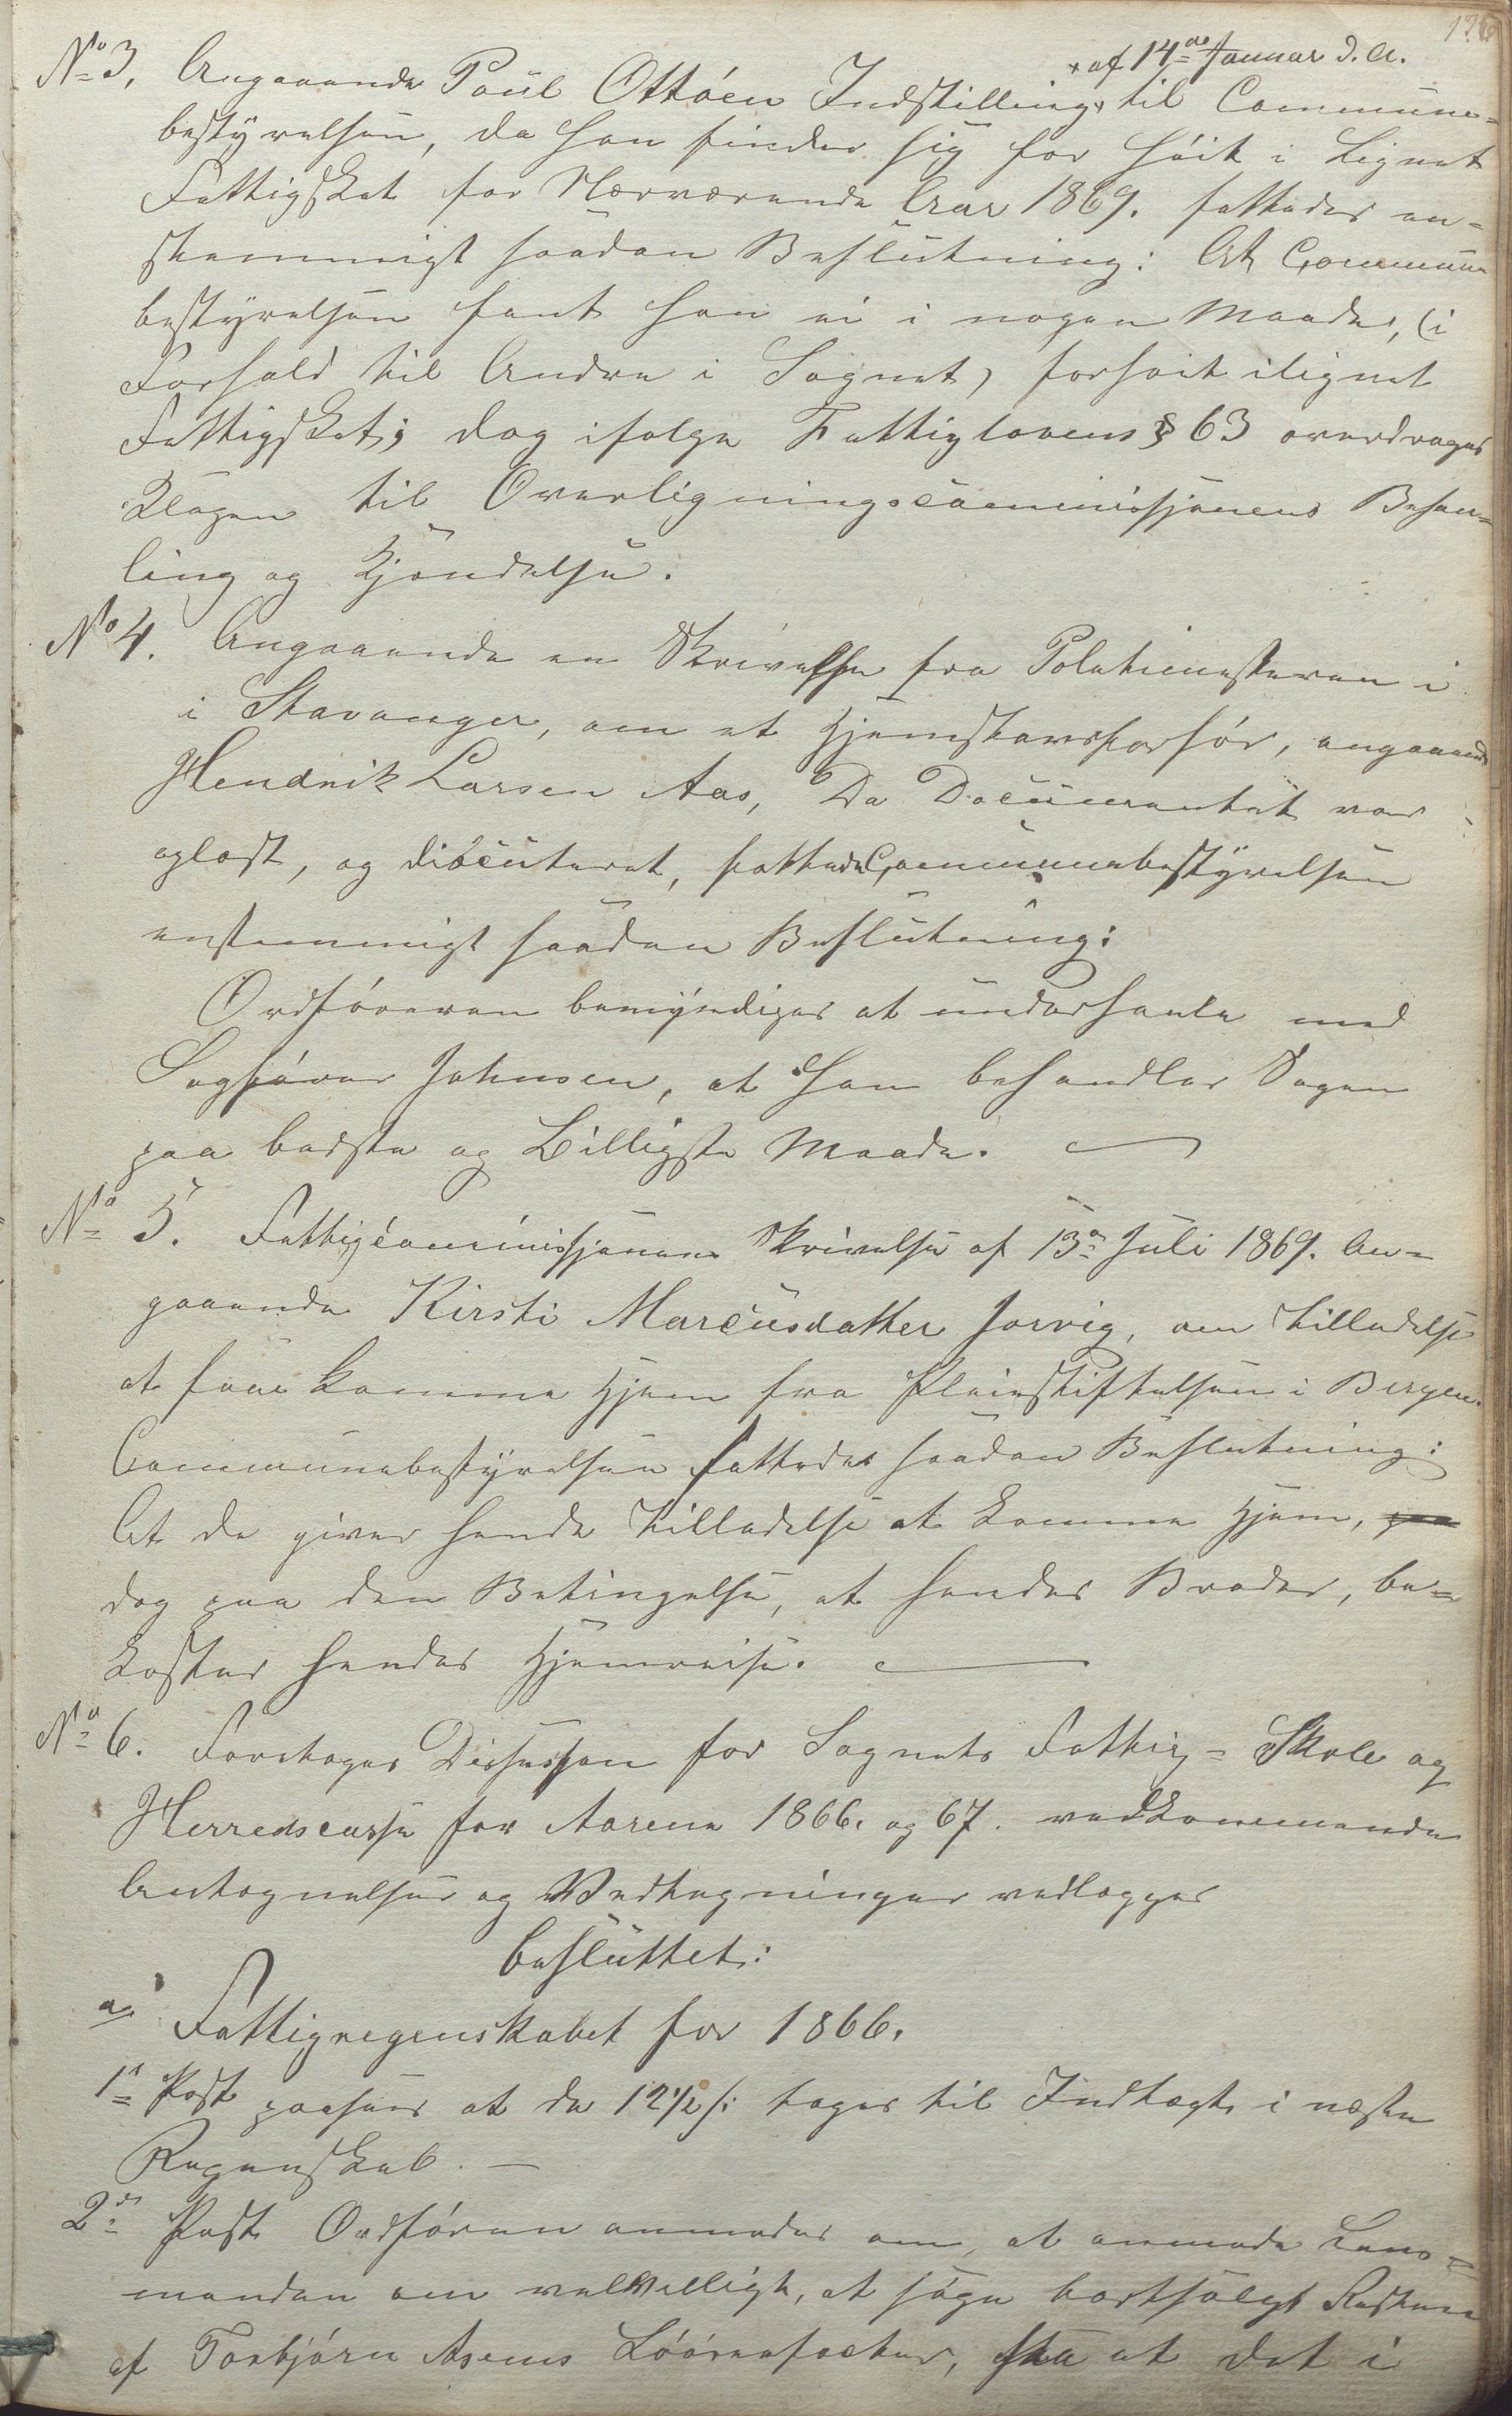 + af 14de Januar d. A.
No 3, Angaaende Poul Ottöen Indstilling, + til Commune-
bestyrelsen, da han finder sig for höit i lignet
Fattigskat for Nærværende Aar 1869. fattedes en-
stemmigt saadan Beslutning: At Commune
bestyrelsen fant han ei i nogen Maade, (i
Forhold til Andre i Sognet) forhöit ilignet
Fattigskat; dog ifölge Fattiglovens § 63 overdrages
Klagen til Overligningscommissjonens Behan-
ling og Kjendelse.
No 4. Angaaende en Skrivelse fra Politimesteren i
i Stavanger, om et Hjemstavnsforhör, angaaende
Hendrik Larsen Aas, Da Documentet var
oplæst, og discuteret, fattede Communebestyrelsen
enstemmigt saadan Beslutning:
Ordföreren bemyndiges at underhanle med
Sagförer Johnsen, at han behandler Sagen
paa bedste og Billigste Maade.
No 5. Fattigcommissjonens Skrivelse af 13de Juli 1869. An-
gaaende Kirsti Marcusdatter Jorvig, om tilladelse
at faae komme Hjem fra Pleiestiftelsen i Bergen.
Communebestyrelsen fattedes saadan Beslutning:
At de giver hende tilladelse at komme Hjem, paa
dog paa den Betingelse, at hendes Broder, be-
koster hendes Hjemreise.
No 6. Foretages Dissusjon for Sognets Fattig- Skole og
Herredscasse for Aarene 1866. og 67. vedkommende
Antegnelser og Vedtegninger vedlægges
besluttet:
a. Fattigregenskabet for 1866.
1ste Post paasees at de 12½ s: tages til Indtægt i næste
Regenskab. —
2den Post Ordföreren anmodes om, at anmode Lens-
manden om velvilligt, at söge bortsolgt Resten
af Torbjörn Asens Löörefoetter, saa at det i